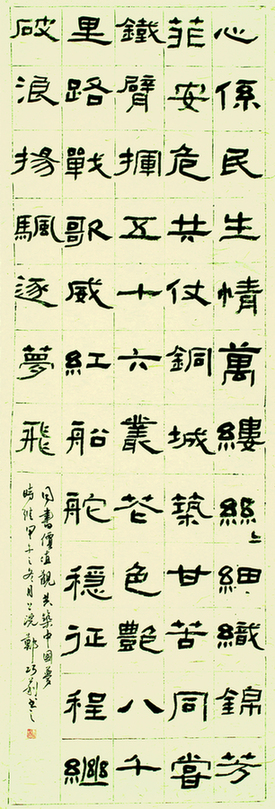 心係民生情萬縷絲〻細織錦芳
菲安危共仗銅城築甘苦同嘗
鐵臂揮五十六叢花色艷八千
里路戰歌威紅船舵穩征程繼
破浪揚颿逐夢飛
同書價值觀共築中國夢
時維甲午之冬月上浣鄭巧書之